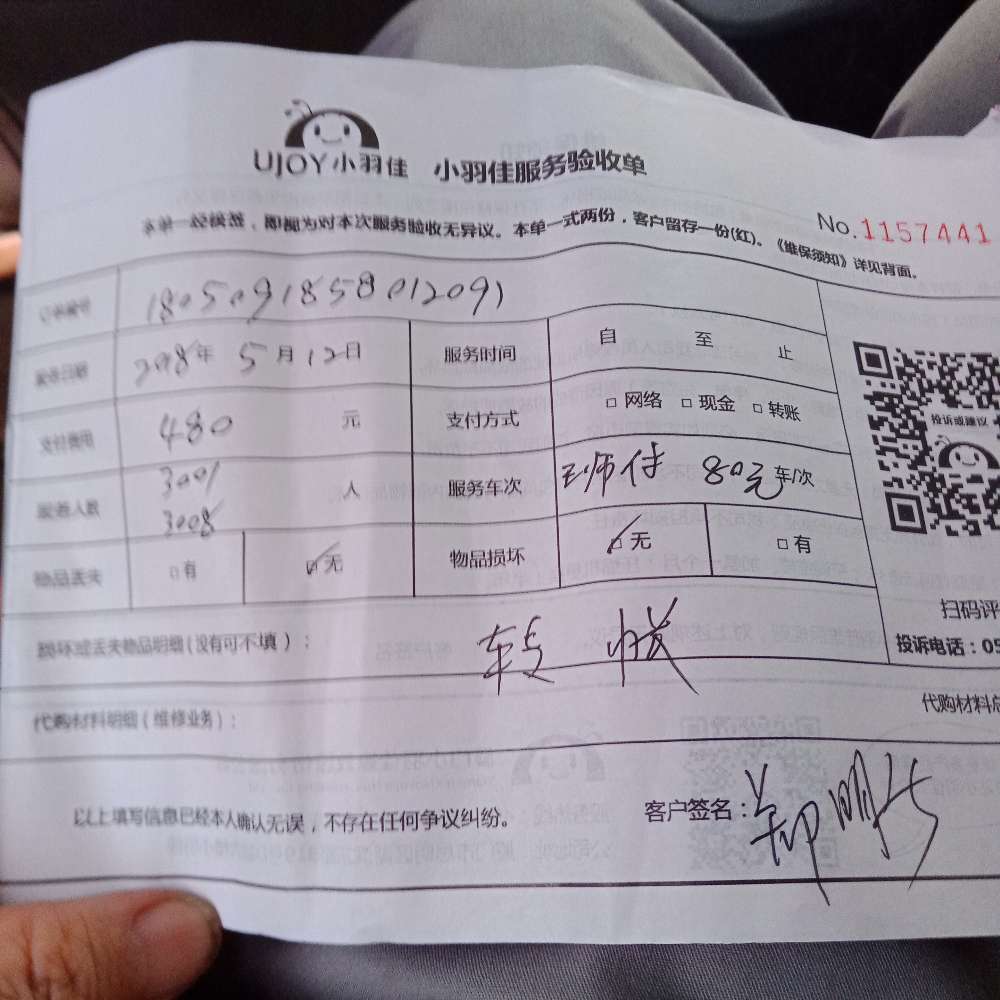 UJOY小羽佳 小羽佳服务验收单
No.1157441
本单一经填签，即视为对本次服务验收无异议。本单一式两份，客户留存一份(红)。《维保须知》详见背面。
订单编号 180509185801209
服务日期 2018年 5月12日 服务时间 自 至 止
支付费用 480 元 支付方式 □网络 □现金 □转账
服务人数 3001 3008 人 服务车次 付 80元 车/次
物品丢失 □有 ☑无 物品损坏 ☑无 □有
投诉或建议
扫码评
投诉电话：05
损坏或丢失物品明细(没有可不填)：
代购材料明细(维修业务)： 代购材料总
以上填写信息已经本人确认无误，不存在任何争议纠纷。 客户签名：